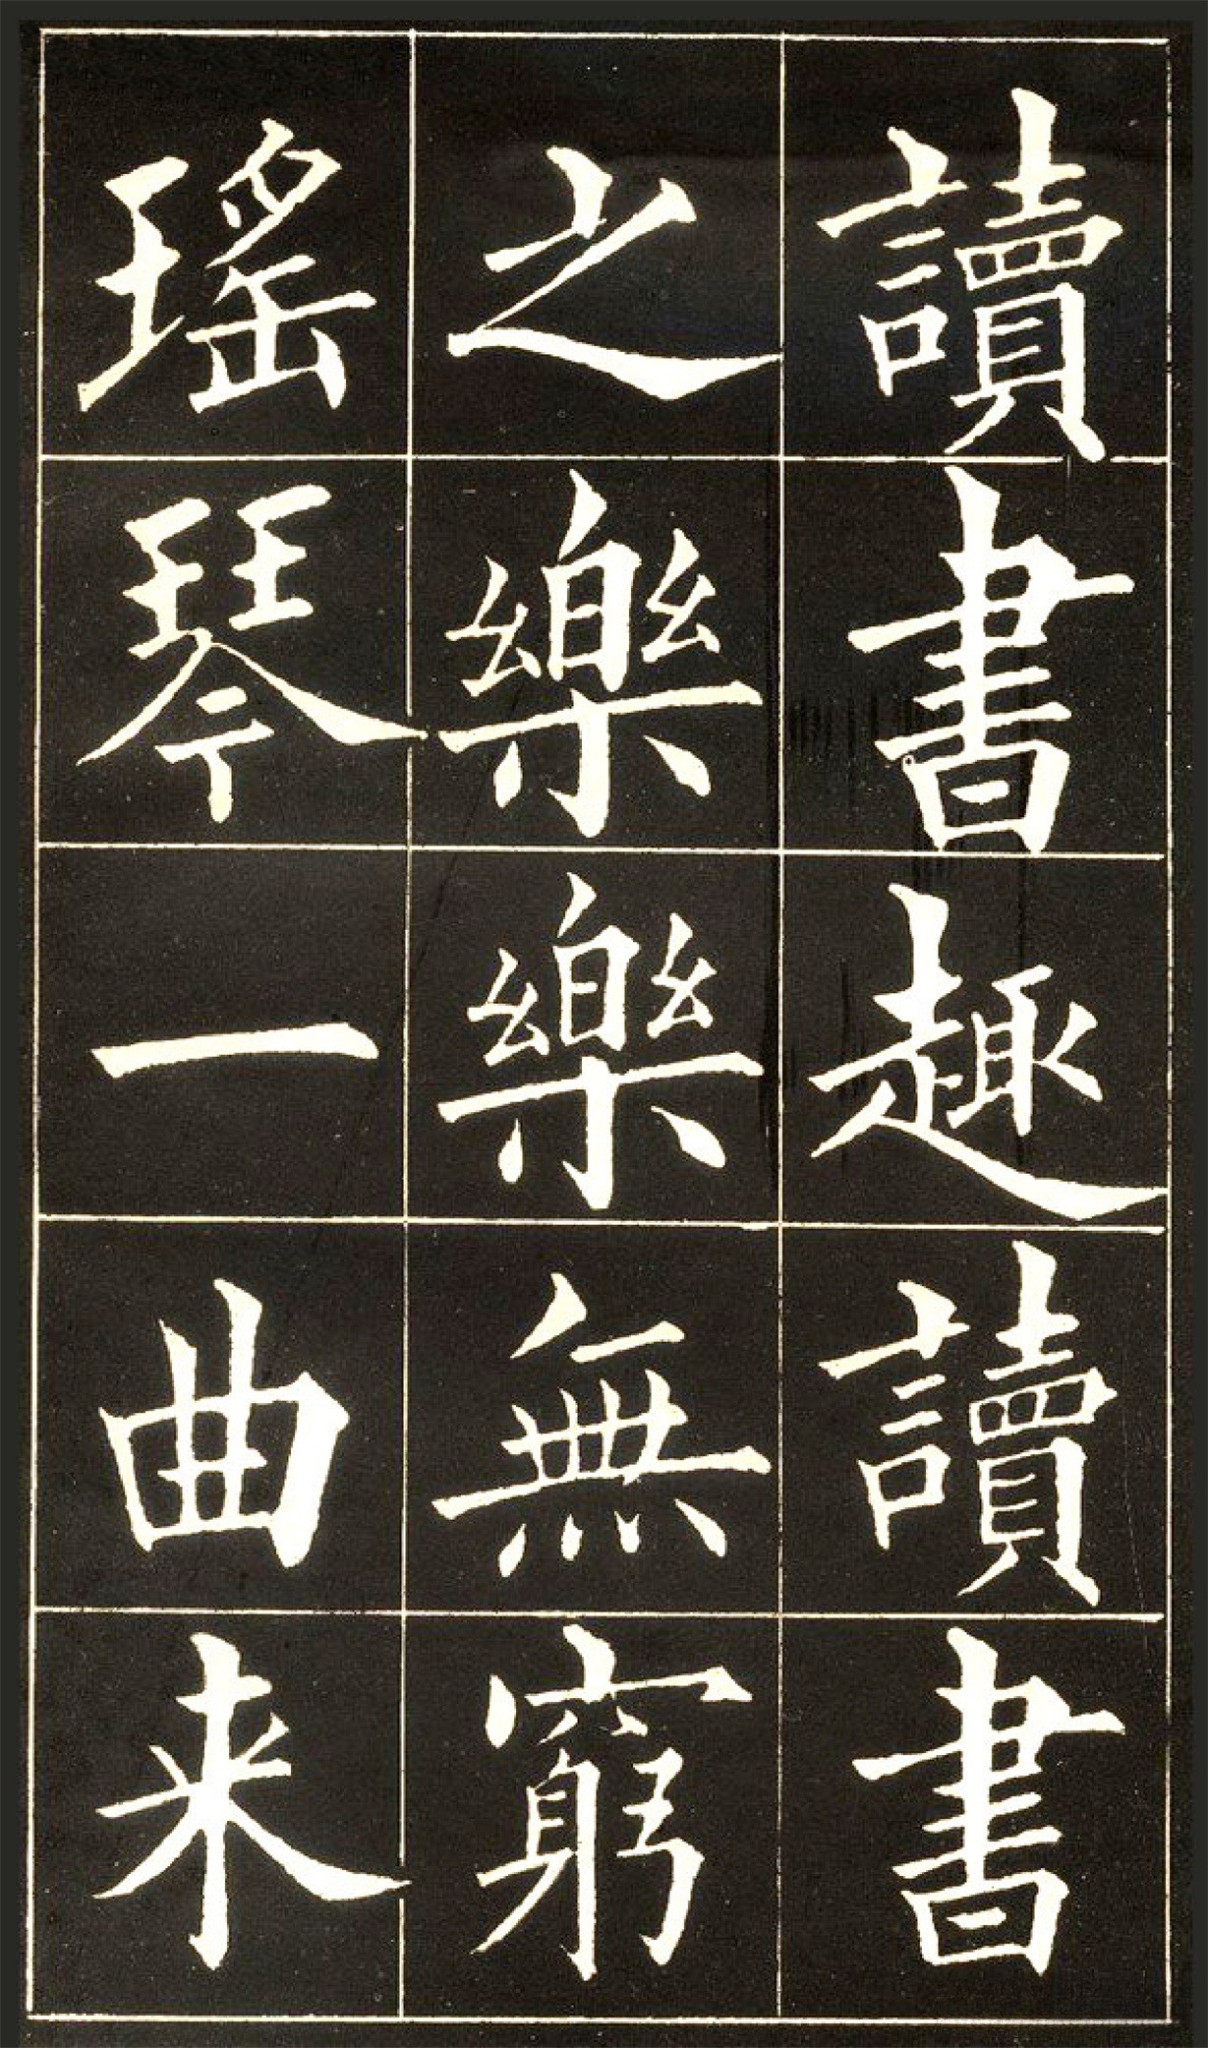 讀書趣讀書
之樂樂無窮
瑤琴一曲来